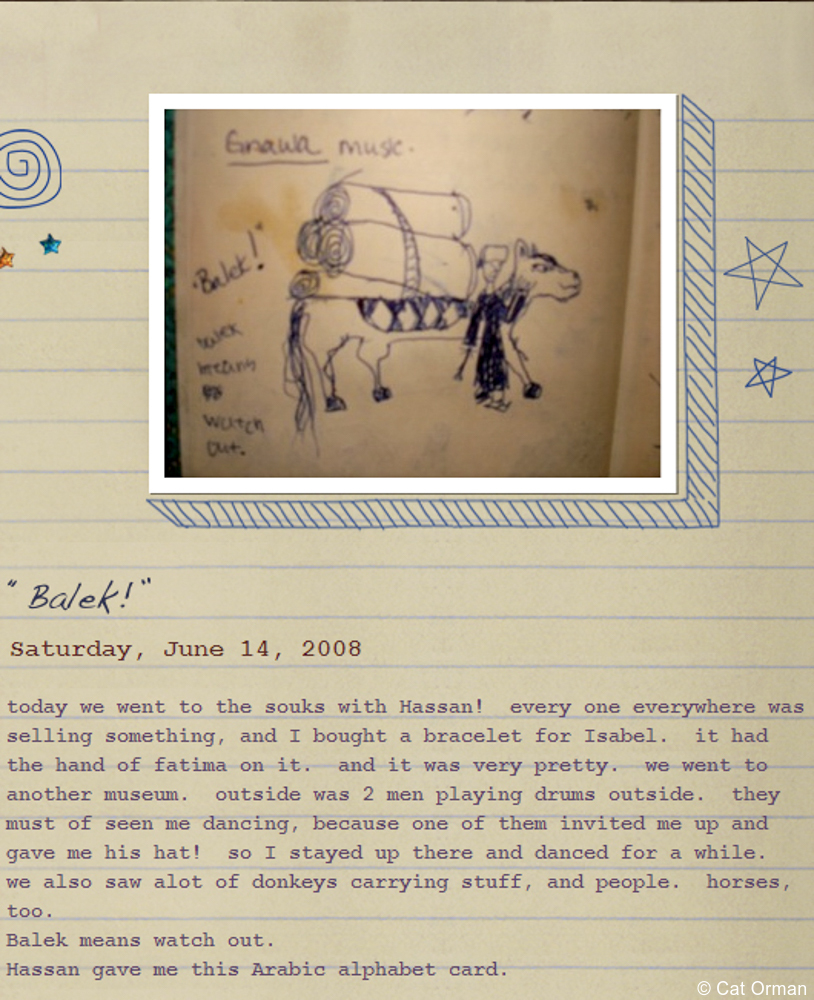 Gnawa music.
"Balek!"
balek
means
watch
out.
"Balek!"
Saturday, June 14, 2008
today we went to the souks with Hassan!  every one everywhere was
selling something, and I bought a bracelet for Isabel.  it had
the hand of fatima on it.  and it was very pretty.  we went to
another museum.  outside was 2 men playing drums outside.  they
must of seen me dancing, because one of them invited me up and
gave me his hat!  so I stayed up there and danced for a while.
we also saw alot of donkeys carrying stuff, and people.  horses,
too.
Balek means watch out.
Hassan gave me this Arabic alphabet card.
© Cat Orman